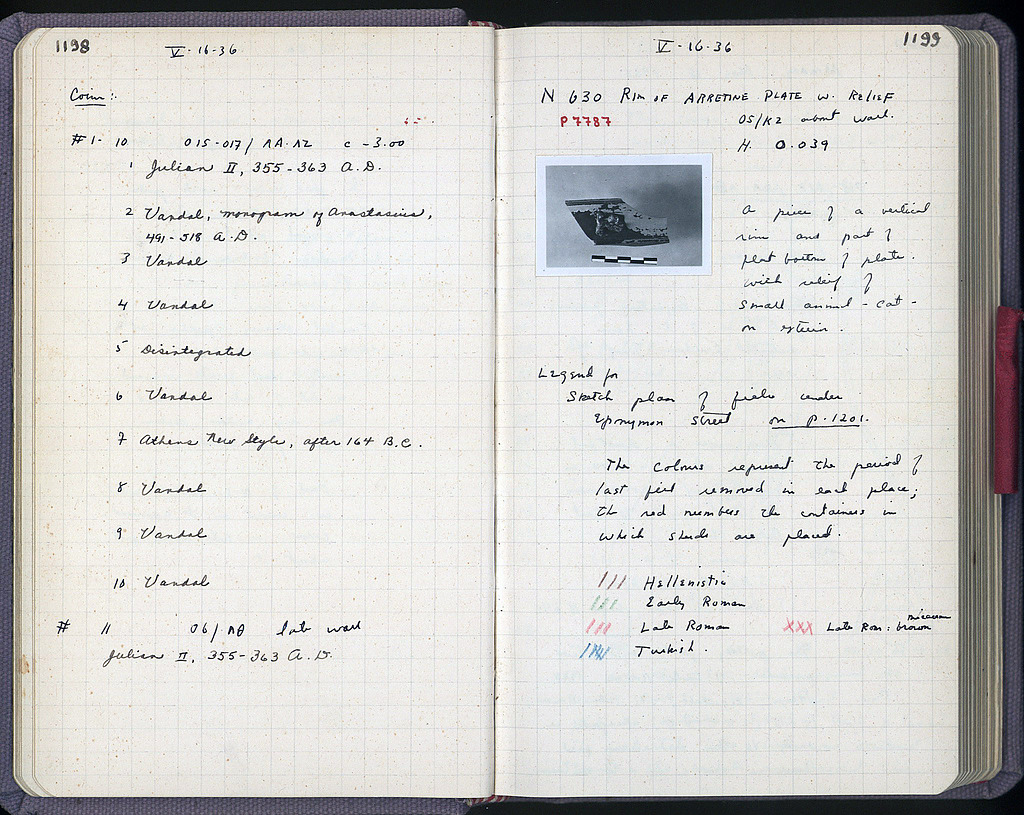 1198
V-16-36
Coins:
#1-10 015-017/ΛΑ-ΛΖ c -3.00
1 Julian II, 355-363 A.D.
2 Vandal, monogram of Anastasius,
491-518 A.D.
3 Vandal
4 Vandal
5 Disintegrated
6 Vandal
7 Athens New Style, after 164 B.C.
8 Vandal
9 Vandal
10 Vandal
# 11 06/ΛΘ late wall
Julian II, 355-363 A.D.
1199
V-16-36
N 630 RIM OF ARRETINE PLATE W. RELIEF
P 7787
05/KZ about wall.
H. 0.039
A piece of a vertical
rim and part of
flat bottom of plate.
with relief of
small animal - cat -
on exterior.
Legend for
Sketch plan of field under
Eponymon Street on p. 1201.
The colours represent the period of
last fill removed in each place;
the red numbers the containers in
which sherds are placed.
/// Hellenistic
/// Early Roman
/// Late Roman XXX Late Rom: micaceous brown
//// Turkish.